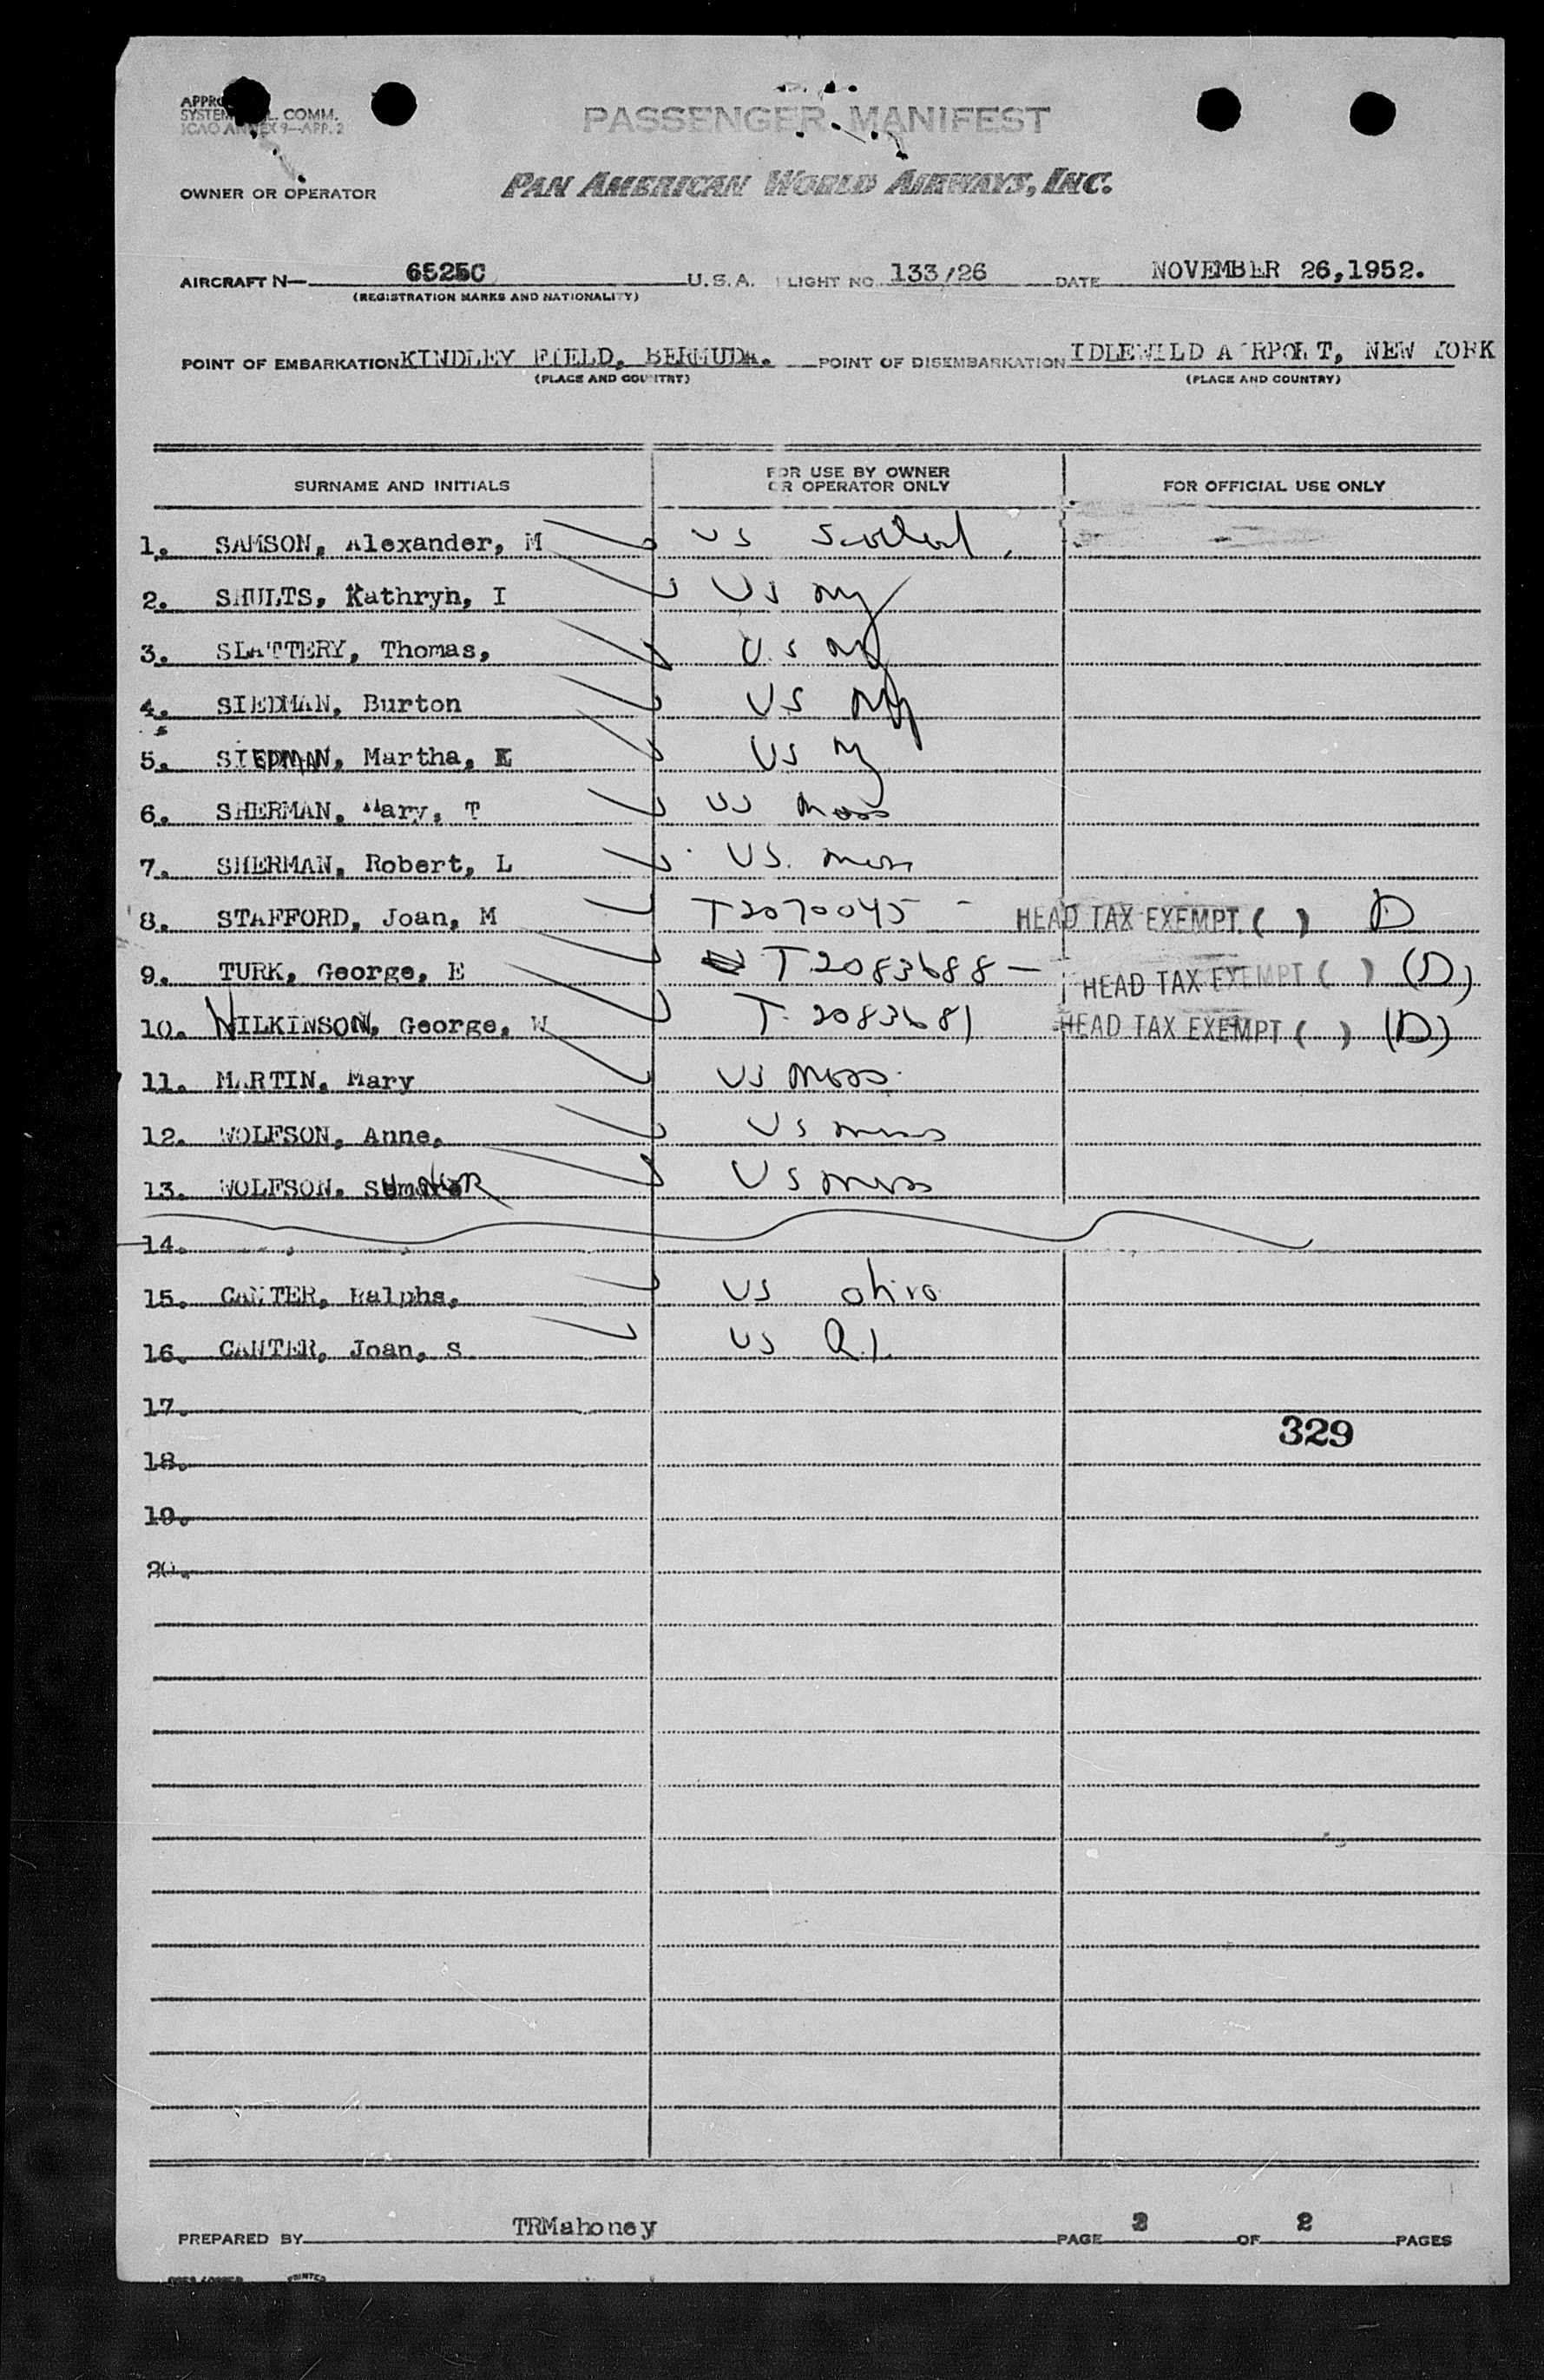 SYSTEM L. COMM.
ICAO ANNEX 9—APP. 2
PASSENGER MANIFEST
OWNER OR OPERATOR PAN AMERICAN WORLD AIRWAYS, INC.
AIRCRAFT N— 6525C U.S.A. FLIGHT NO. 133/26 DATE NOVEMBER 26,1952.
(REGISTRATION MARKS AND NATIONALITY)
POINT OF EMBARKATION KINDLEY FIELD, BERMUDA. POINT OF DISEMBARKATION IDLEWILD AIRPORT, NEW YORK
(PLACE AND COUNTRY) (PLACE AND COUNTRY)
SURNAME AND INITIALS FOR USE BY OWNER OR OPERATOR ONLY FOR OFFICIAL USE ONLY
1. SAMSON, Alexander, M US Scotland
2. SHULTS, Kathryn, I US NY
3. SLATTERY, Thomas, U.S NY
4. SIEDMAN, Burton US NY
5. SIEDMAN, Martha, E US NY
6. SHERMAN, Mary, T US Mass
7. SHERMAN, Robert, L US. Mass
8. STAFFORD, Joan, M T2070045 - HEAD TAX EXEMPT ( ) D
9. TURK, George, E T2083688 — HEAD TAX EXEMPT ( ) (D)
10. WILKINSON, George, W T. 2083681 HEAD TAX EXEMPT ( ) (D)
11. MARTIN, Mary US Mass.
12. WOLFSON, Anne, US Mass
13. WOLFSON, US Mass
14.
15. CANTER, Ralphs, US Ohio
16. CANTER, Joan, S US R.I.
17.
329
18.
19.
20.
PREPARED BY TRMahoney PAGE 2 OF 2 PAGES